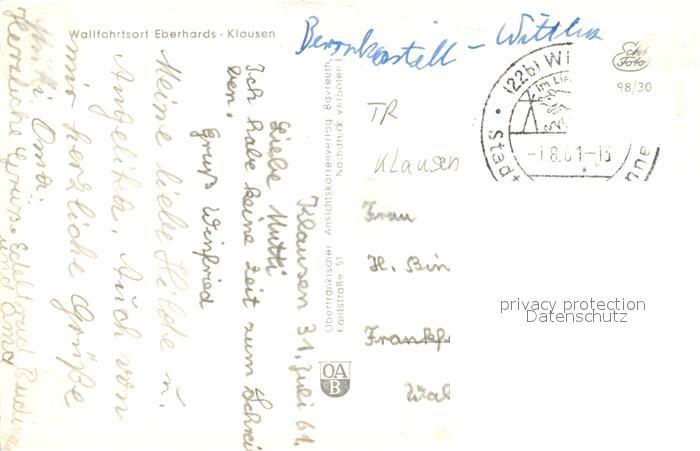 Wallfahrtsort Eberhards - Klausen
Bernkastell - Wittlich
Echt Foto
98/30
TR
Klausen
(22b) Wi
Im Lie
-1.8.61-13
Stadt
nne
Klausen 31. Juli 61.
Liebe Mutti
Ich habe keine Zeit zum Schrei
ben.
Gruß Winfried
Meine liebe Hilde u.
Angelika. Auch von
mir herzliche Grüße
Mutti. Oma.
Herzliche Grüße Edeltraud
und Oma
Oberfränkischer Ansichtskartenverlag Bayreuth,
Kantstraße 51 Nachdruck verboten!
OA
B
Frau
H. Bin
Frankf
Wal
privacy protection
Datenschutz